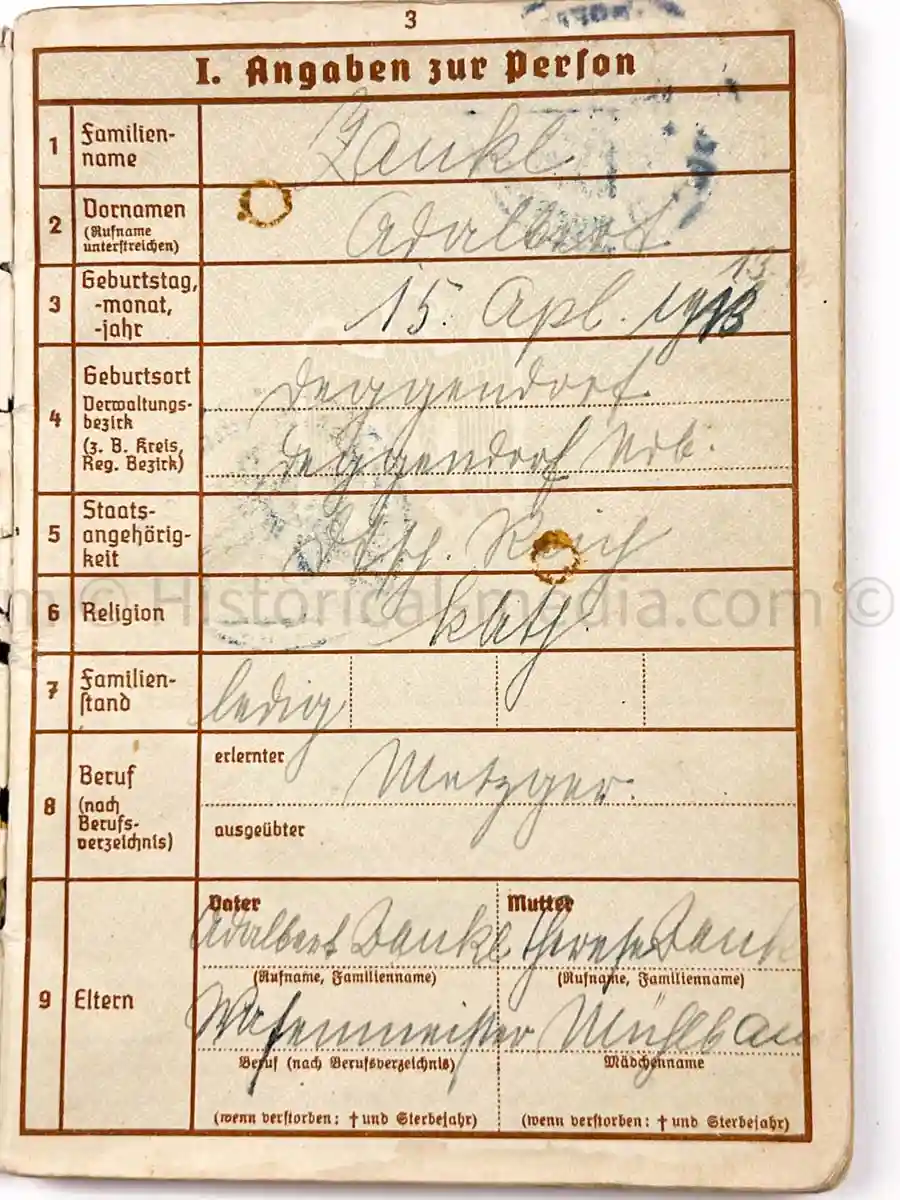 3
I. Angaben zur Person
1 Familien-
name
Zankl
2 Vornamen
(Rufname
unterstreichen)
Adalbert
3 Geburtstag,
-monat,
-jahr
13.
15. Apl. 1913
4 Geburtsort
Verwaltungs-
bezirk
(z. B. Kreis,
Reg. Bezirk)
Deggendorf
Deggendorf Ndb.
5 Staats-
angehörig-
keit
Dtsch. Reich
6 Religion
kath.
7 Familien-
stand
ledig
8 Beruf
(nach
Berufs-
verzeichnis)
erlernter
Metzger.
ausgeübter
9 Eltern
Vater
Adalbert Zankl
(Rufname, Familienname)
Wasenmeister
Beruf (nach Berufsverzeichnis)
(wenn verstorben: † und Sterbejahr)
Mutter
Therese Zankl
(Rufname, Familienname)
Mädchenname
(wenn verstorben: † und Sterbejahr)
© Historicalsmedia.com ©